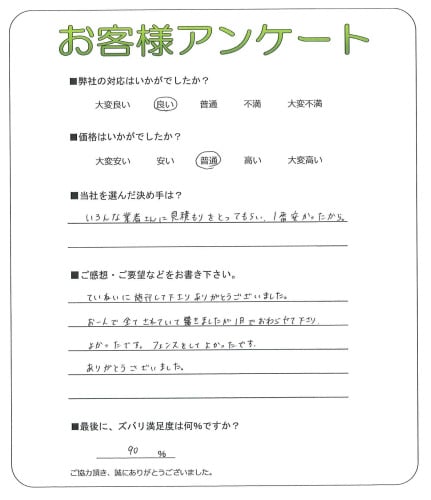 お客様アンケート
■弊社の対応はいかがでしたか？
大変良い 良い 普通 不満 大変不満
■価格はいかがでしたか？
大変安い 安い 普通 高い 大変高い
■当社を選んだ決め手は？
いろんな業者さんに見積もりをとってもらい、1番安かったから。
■ご感想・ご要望などをお書き下さい。
ていねいに施行して下さり ありがとうございました。
お一人で全てされていて驚きましたが1日でおわらせて下さり
よかったです。フェンスをしてよかったです。
ありがとうございました。
■最後に、ズバリ満足度は何％ですか？
90 ％
ご協力頂き、誠にありがとうございました。